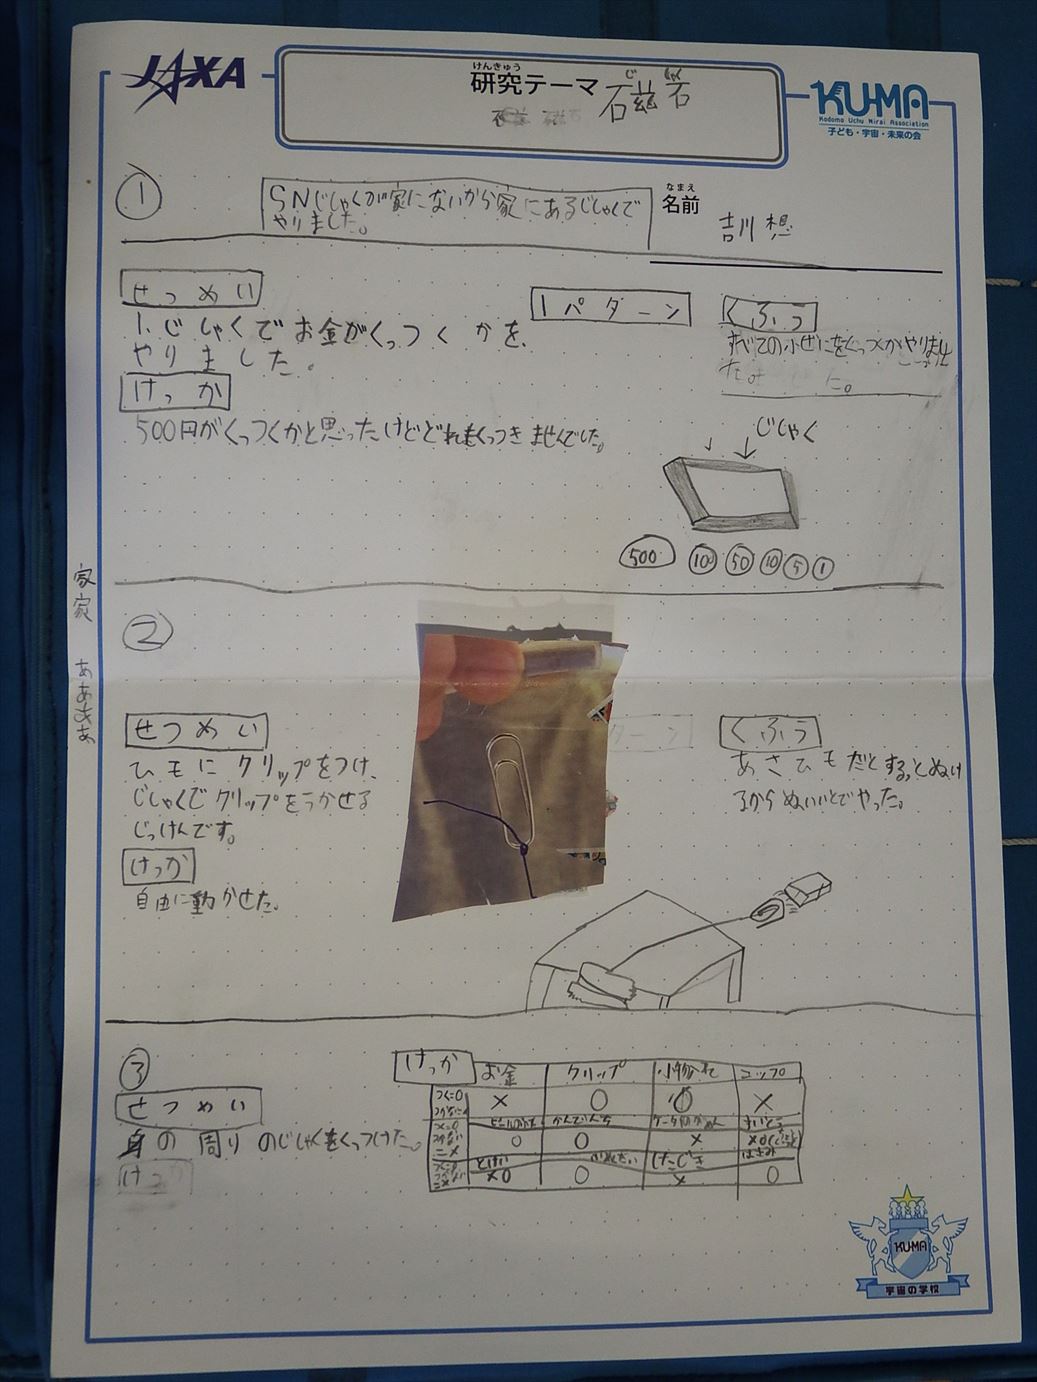 JAXA
けんきゅう
研究テーマ
じしゃく
磁石
KU-MA
Kodomo Uchu Mirai Association
子ども・宇宙・未来の会
①
SNじしゃくが家にないから家にあるじしゃくで
やりました。
なまえ
名前
吉川 想
せつめい
1、じしゃくでお金がくっつくかを、
やりました。
けっか
500円がくっつくかと思ったけどどれもくっつきませんでした。
1パターン
くふう
すべての小ぜにをくっつくかやりまし
た。
じしゃく
500
100
50
10
5
1
家
家
ああああ
②
せつめい
ひもにクリップをつけ、
じしゃくでクリップをうかせる
じっけんです。
けっか
自由に動かせた。
くふう
あさひもだとするっとぬけ
るからぬいいとでやった。
③
せつめい
身の周りのじしゃくをくっつけた。
けっか
けっか
お金 クリップ 小物入れ コップ
× ○ ○ ×
かんでんち すいとう
○ ○ ×
とけい はさみ
×○ ○ × ○
KUMA
宇宙の学校